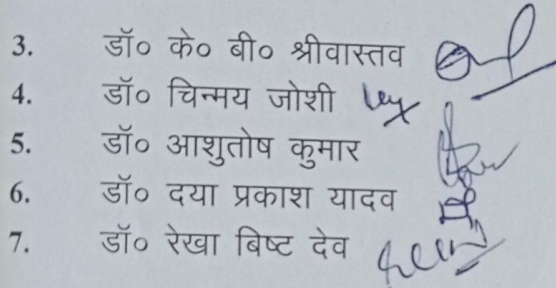 3. डॉ० के० बी० श्रीवास्तव
4. डॉ० चिन्मय जोशी
5. डॉ० आशुतोष कुमार
6. डॉ० दया प्रकाश यादव
7. डॉ० रेखा बिष्ट देव